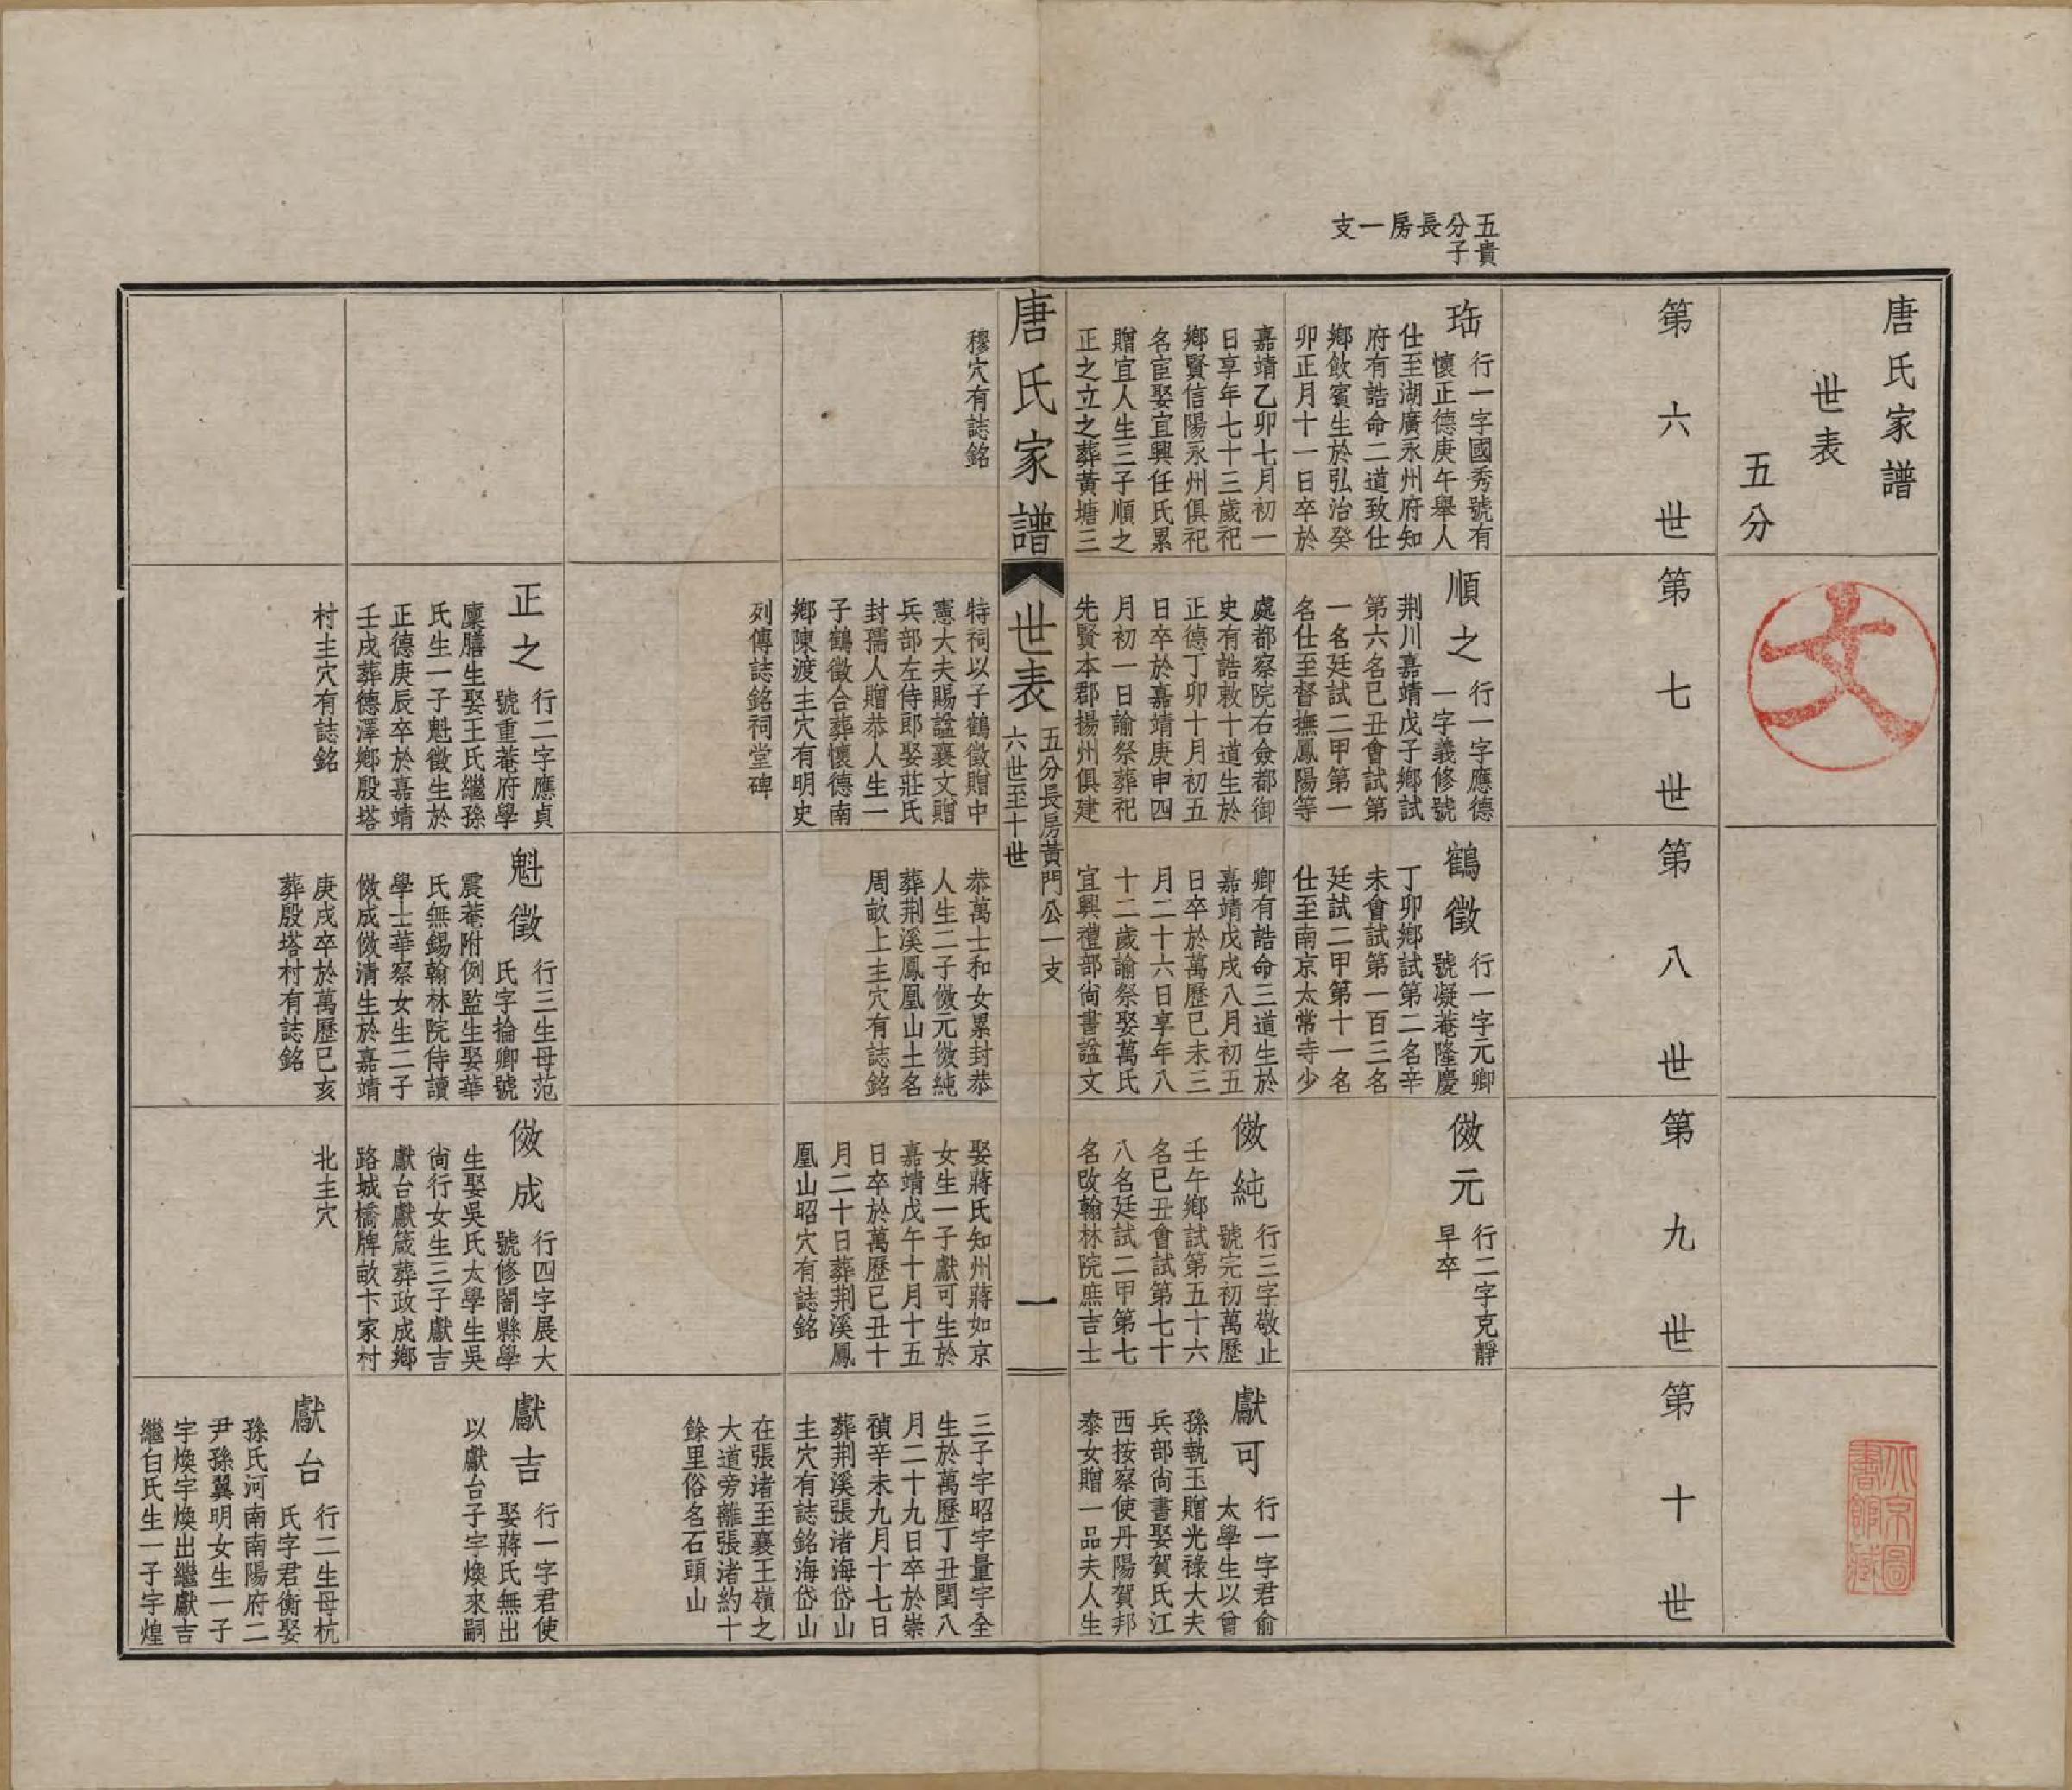 五貴
分子
長
房
一
支
唐氏家譜
世表
五分
文
北京圖
書館藏
第六世
第七世
第八世
第九世
第十世
珤
行一字國秀號有
懷正德庚午舉人
仕至湖廣永州府知
府有誥命二道致仕
鄉飲賓生於弘治癸
卯正月十一日卒於
嘉靖乙卯七月初一
日享年七十三歲祀
鄉賢信陽永州俱祀
名宦娶宜興任氏累
贈宜人生三子順之
正之立之葬黃塘三
穆穴有誌銘
順之
行一字應德
一字義修號
荆川嘉靖戊子鄉試
第六名己丑會試第
一名廷試二甲第一
名仕至督撫鳳陽等
處都察院右僉都御
史有誥敕十道生於
正德丁卯十月初五
日卒於嘉靖庚申四
月初一日諭祭葬祀
先賢本郡揚州俱建
特祠以子鶴徵贈中
憲大夫賜諡襄文贈
兵部左侍郎娶莊氏
封孺人贈恭人生一
子鶴徵合葬懷德南
鄉陳渡主穴有明史
列傳誌銘祠堂碑
鶴徵
行一字元卿
號凝菴隆慶
丁卯鄉試第二名辛
未會試第一百三名
廷試二甲第十一名
仕至南京太常寺少
卿有誥命三道生於
嘉靖戊戌八月初五
日卒於萬歷己未三
月二十六日享年八
十二歲諭祭娶萬氏
宜興禮部尚書諡文
恭萬士和女累封恭
人生二子傚元傚純
葬荆溪鳳凰山土名
周畝上主穴有誌銘
傚元
行二字克靜
早卒
傚純
行三字敬止
號完初萬歷
壬午鄉試第五十六
名己丑會試第七十
八名廷試二甲第七
名改翰林院庶吉士
娶蔣氏知州蔣如京
女生一子獻可生於
嘉靖戊午十月十五
日卒於萬歷己丑十
月二十日葬荆溪鳳
凰山昭穴有誌銘
獻可
行一字君俞
太學生以曾
孫執玉贈光祿大夫
兵部尚書娶賀氏江
西按察使丹陽賀邦
泰女贈一品夫人生
三子宇昭宇量宇全
生於萬歷丁丑閏八
月二十九日卒於崇
禎辛未九月十七日
葬荆溪張渚海岱山
主穴有誌銘海岱山
在張渚至襄王嶺之
大道旁離張渚約十
餘里俗名石頭山
唐氏家譜
世表
五分長房黃門公一支
六世至十世
一
正之
行二字應貞
號重菴府學
廩膳生娶王氏繼孫
氏生一子魁徵生於
正德庚辰卒於嘉靖
壬戌葬德澤鄉殷塔
村主穴有誌銘
魁徵
行三生母范
氏字掄卿號
震菴附例監生娶華
氏無錫翰林院侍讀
學士華察女生二子
傚成傚清生於嘉靖
庚戌卒於萬歷己亥
葬殷塔村有誌銘
傚成
行四字展大
號修闇縣學
生娶吳氏太學生吳
尚行女生三子獻吉
獻台獻箴葬政成鄉
路城橋牌畝卞家村
北主穴
獻吉
行一字君使
娶蔣氏無出
以獻台子宇煥來嗣
獻台
行二生母杭
氏字君衡娶
孫氏河南南陽府二
尹孫翼明女生一子
宇煥宇煥出繼獻吉
繼白氏生一子宇煌